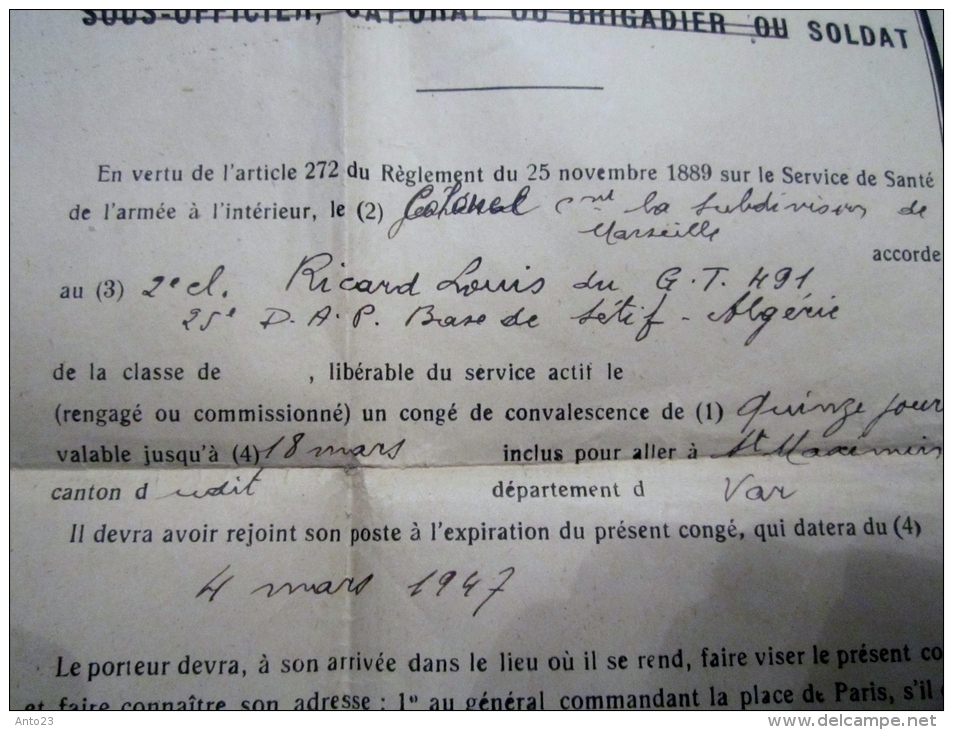 SOUS-OFFICIER, CAPORAL OU BRIGADIER OU SOLDAT
En vertu de l'article 272 du Règlement du 25 novembre 1889 sur le Service de Santé
de l'armée à l'intérieur, le (2) Colonel Cmt la Subdivision de
Marseille
accorde
au (3) 2e cl. Ricard Louis du G.T. 491
25e D.A.P. Base de Sétif - Algérie
de la classe de , libérable du service actif le
(rengagé ou commissionné) un congé de convalescence de (1) Quinze jour
valable jusqu'à (4) 18 mars inclus pour aller à St Maximin
canton d udit département d Var
Il devra avoir rejoint son poste à l'expiration du présent congé, qui datera du (4)
4 mars 1947
Le porteur devra, à son arrivée dans le lieu où il se rend, faire viser le présent co
et faire connaître son adresse : 1° au général commandant la place de Paris, s'il
Anto23
www.delcampe.net